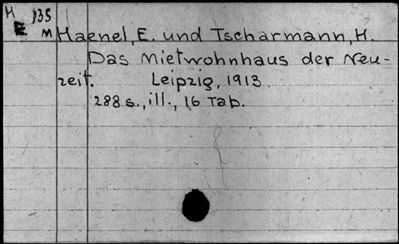 H 135
E M Haenel, E. und Tscharmann, H.
Das Mietwohnhaus der Neu-
zeit. Leipzig, 1913.
288 s., ill., 16 Tab.